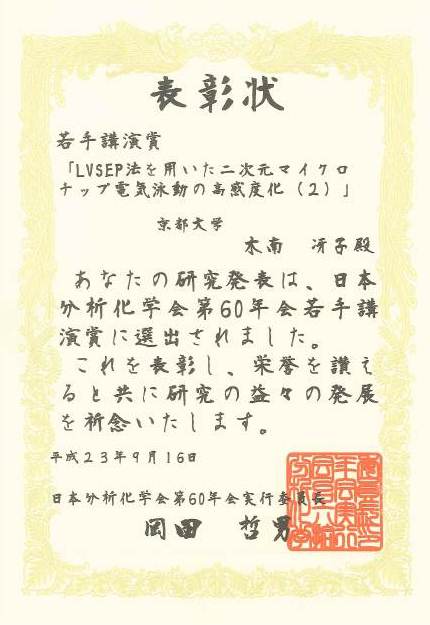 表彰状
若手講演賞
「LVSEP法を用いた二次元マイクロ
チップ電気泳動の高感度化(2)」
京都大学
木南 冴子殿
あなたの研究発表は、日本
分析化学会第60年会若手講
演賞に選出されました。
これを表彰し、栄誉を讃え
ると共に研究の益々の発展
を祈念いたします。
平成23年9月16日
日本分析化学会第60年会実行委員長
岡田 哲男